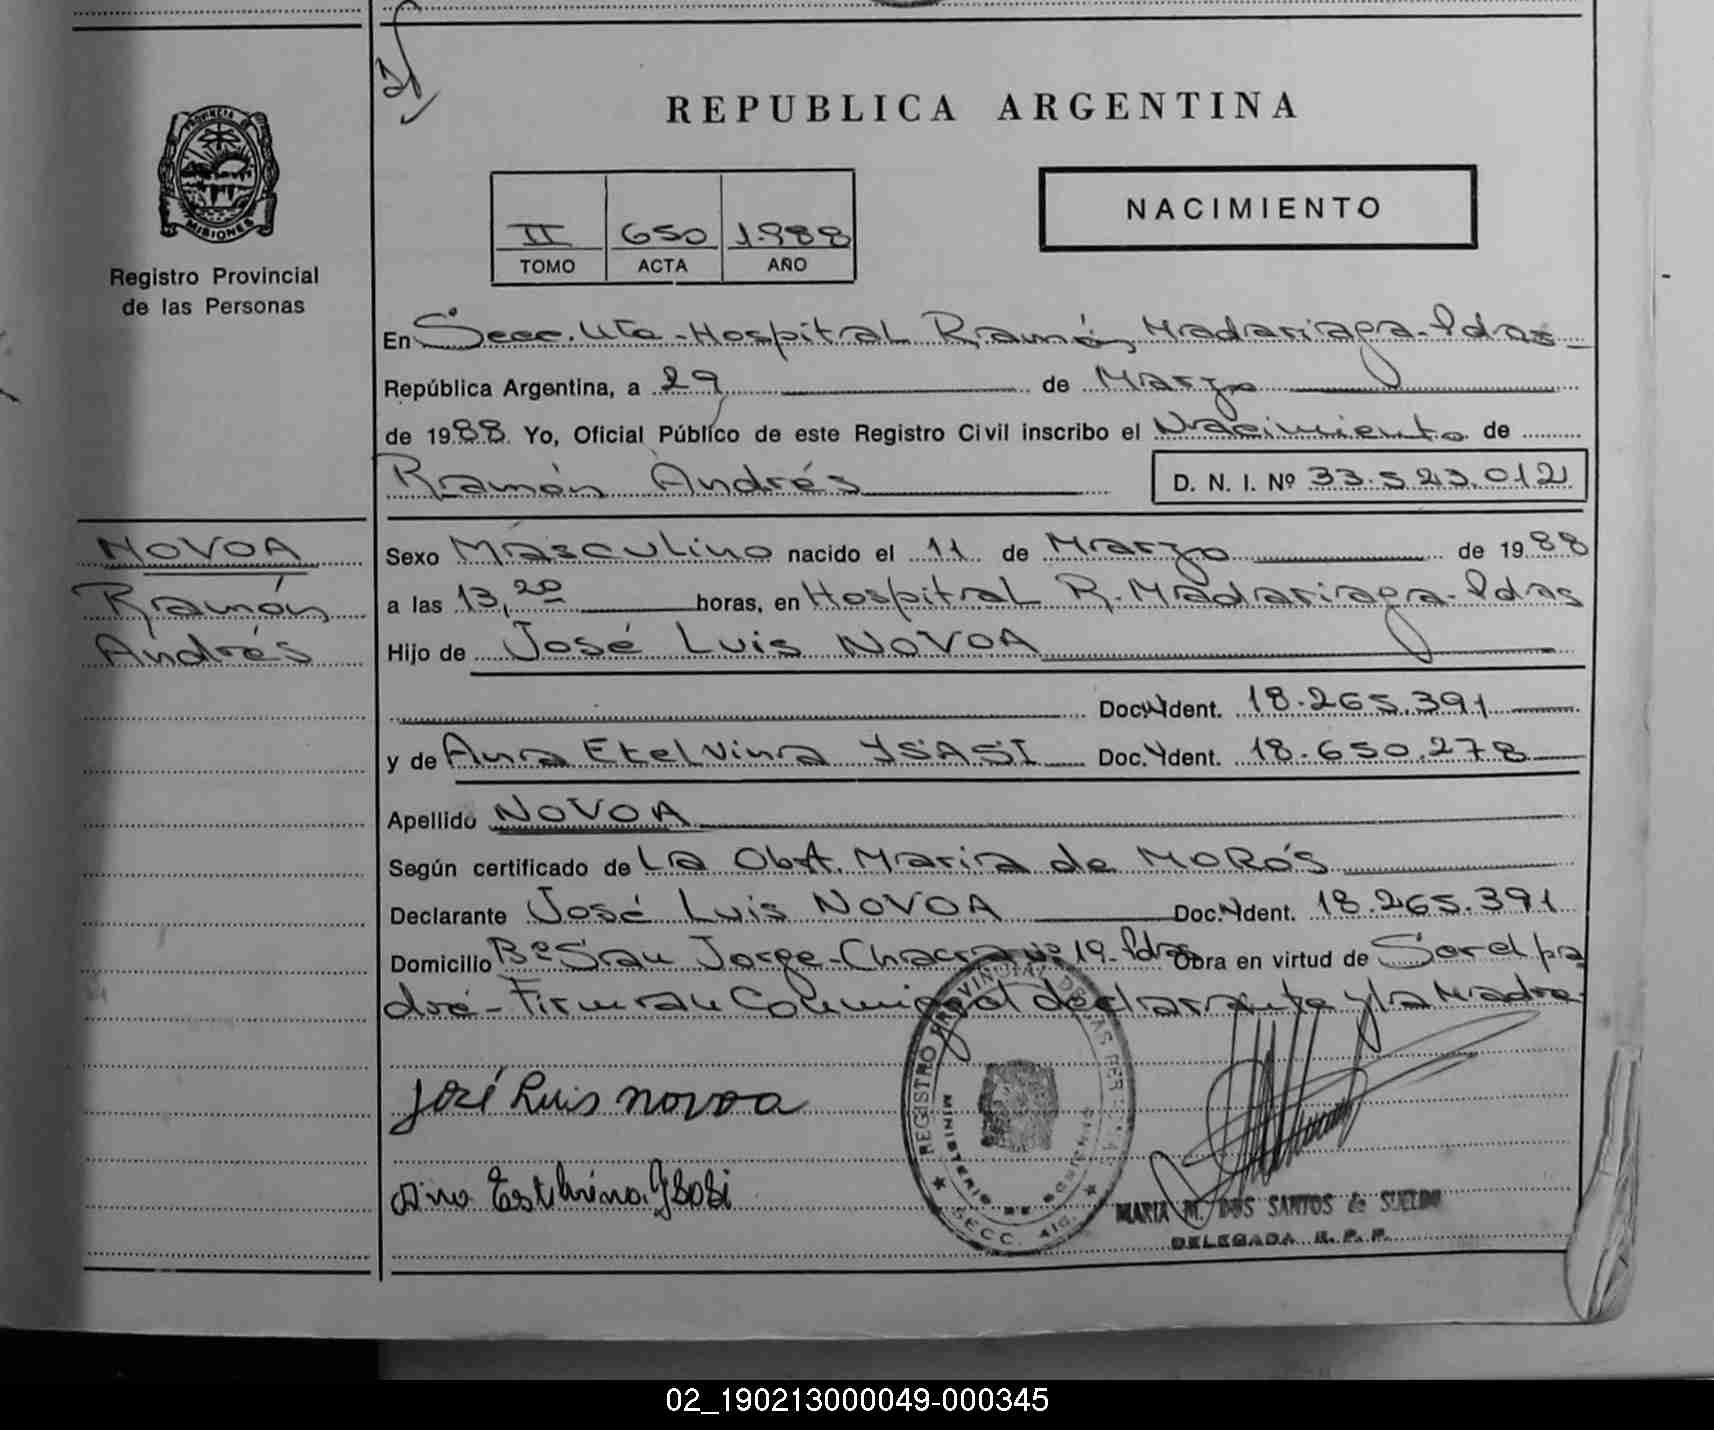 REPUBLICA ARGENTINA
PROVINCIA DE
MISIONES
Registro Provincial
de las Personas
II 650 1.988
TOMO ACTA AÑO
NACIMIENTO
En Secc. 4ta - Hospital Ramón Madariaga - Pdas -
República Argentina, a 29 de Marzo
de 1988 Yo, Oficial Público de este Registro Civil inscribo el Nacimiento de
Ramón Andrés D. N. I. Nº 33.523.012
NOVOA
Ramón
Andrés
Sexo Masculino nacido el 11 de Marzo de 1988
a las 13,20 horas, en Hospital R. Madariaga - Pdas
Hijo de José Luis NOVOA
Doc. Ident. 18.265.391
y de Ana Etelvina YSASI Doc. Ydent. 18.650.278
Apellido NOVOA
Según certificado de La Obst. Maria de MOROS
Declarante José Luis NOVOA Doc. Ident. 18.265.391
Domicilio Bº San Jorge - Chacra Nº 19 - Pdas Obra en virtud de Ser el pa
dre - Firman Conmigo el declarante y la Madre.
José Luis novoa
REGISTRO PROVINCIAL DE LAS PERSONAS
MINISTERIO DE
SECC. 4ta.
MARIA M. DOS SANTOS de SUELDO
DELEGADA R. P. P.
02_190213000049-000345